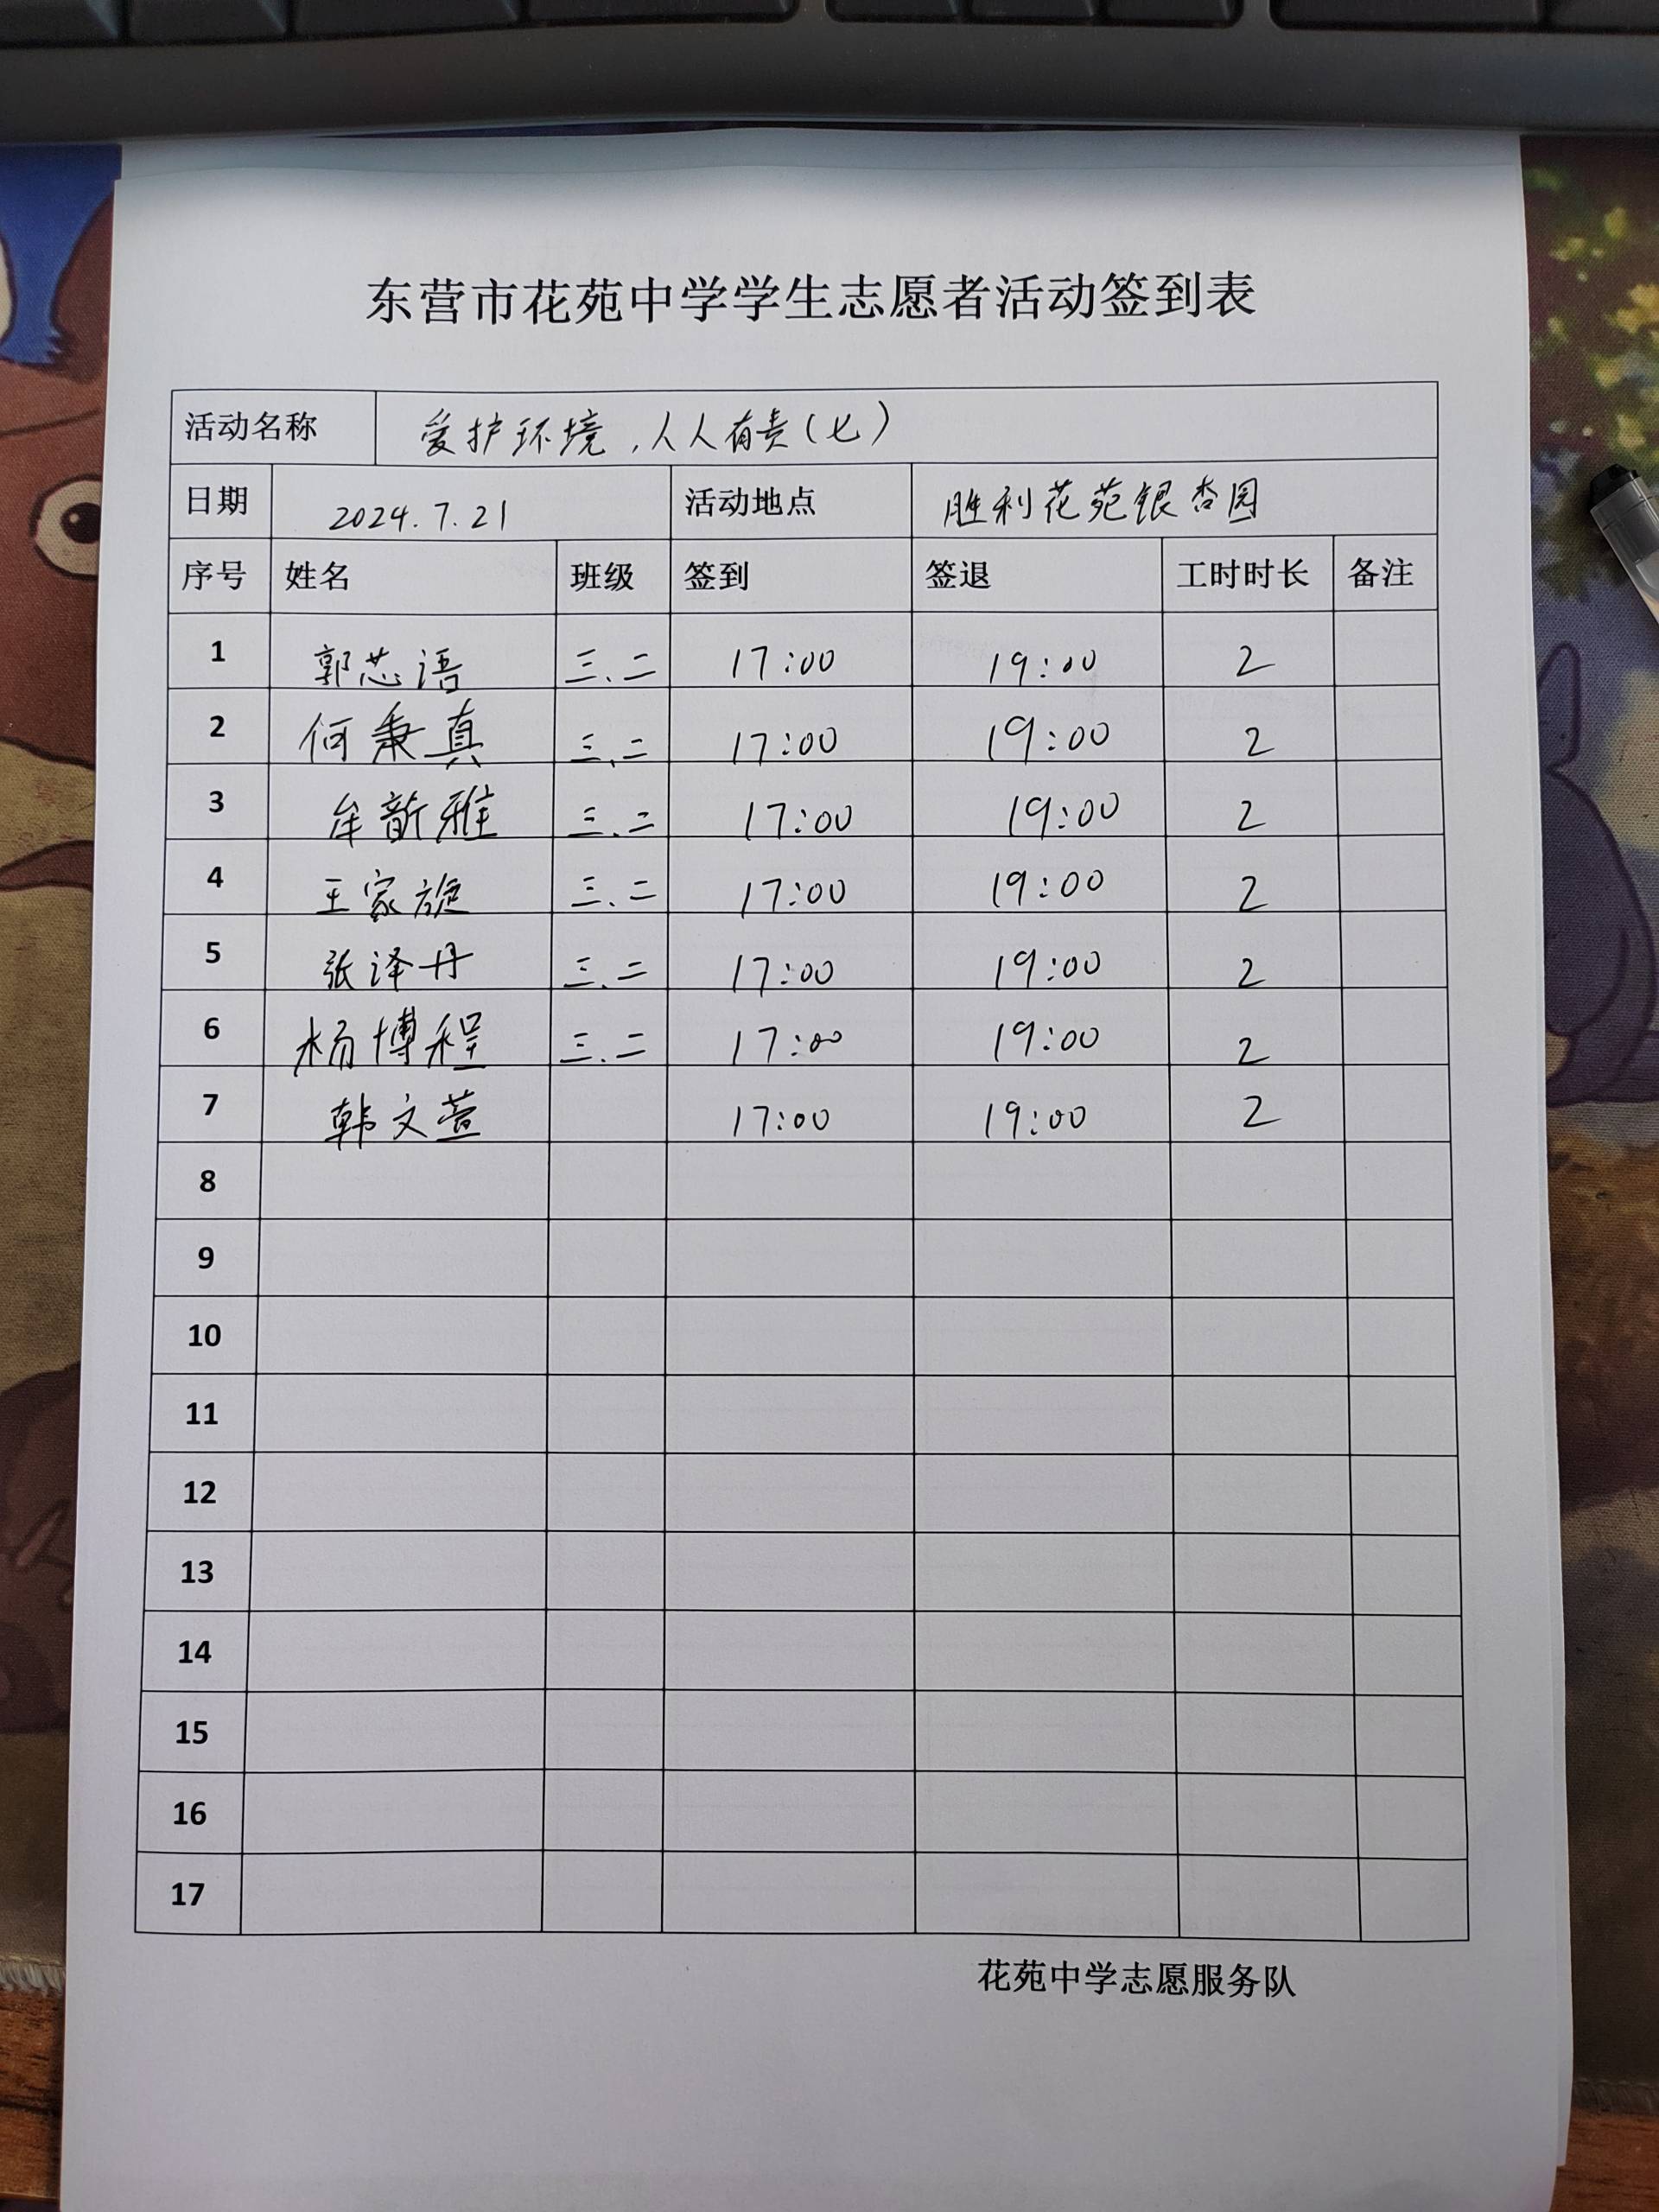 东营市花苑中学学生志愿者活动签到表
活动名称 爱护环境，人人有责（七）
日期 2024.7.21 活动地点 胜利花苑银杏园
序号 姓名 班级 签到 签退 工时时长 备注
1 郭芯语 三.二 17:00 19:00 2
2 何秉真 三.二 17:00 19:00 2
3 牟歆雅 三.二 17:00 19:00 2
4 王家旋 三.二 17:00 19:00 2
5 张泽丹 三.二 17:00 19:00 2
6 杨博程 三.二 17:00 19:00 2
7 韩文萱 17:00 19:00 2
8
9
10
11
12
13
14
15
16
17
花苑中学志愿服务队